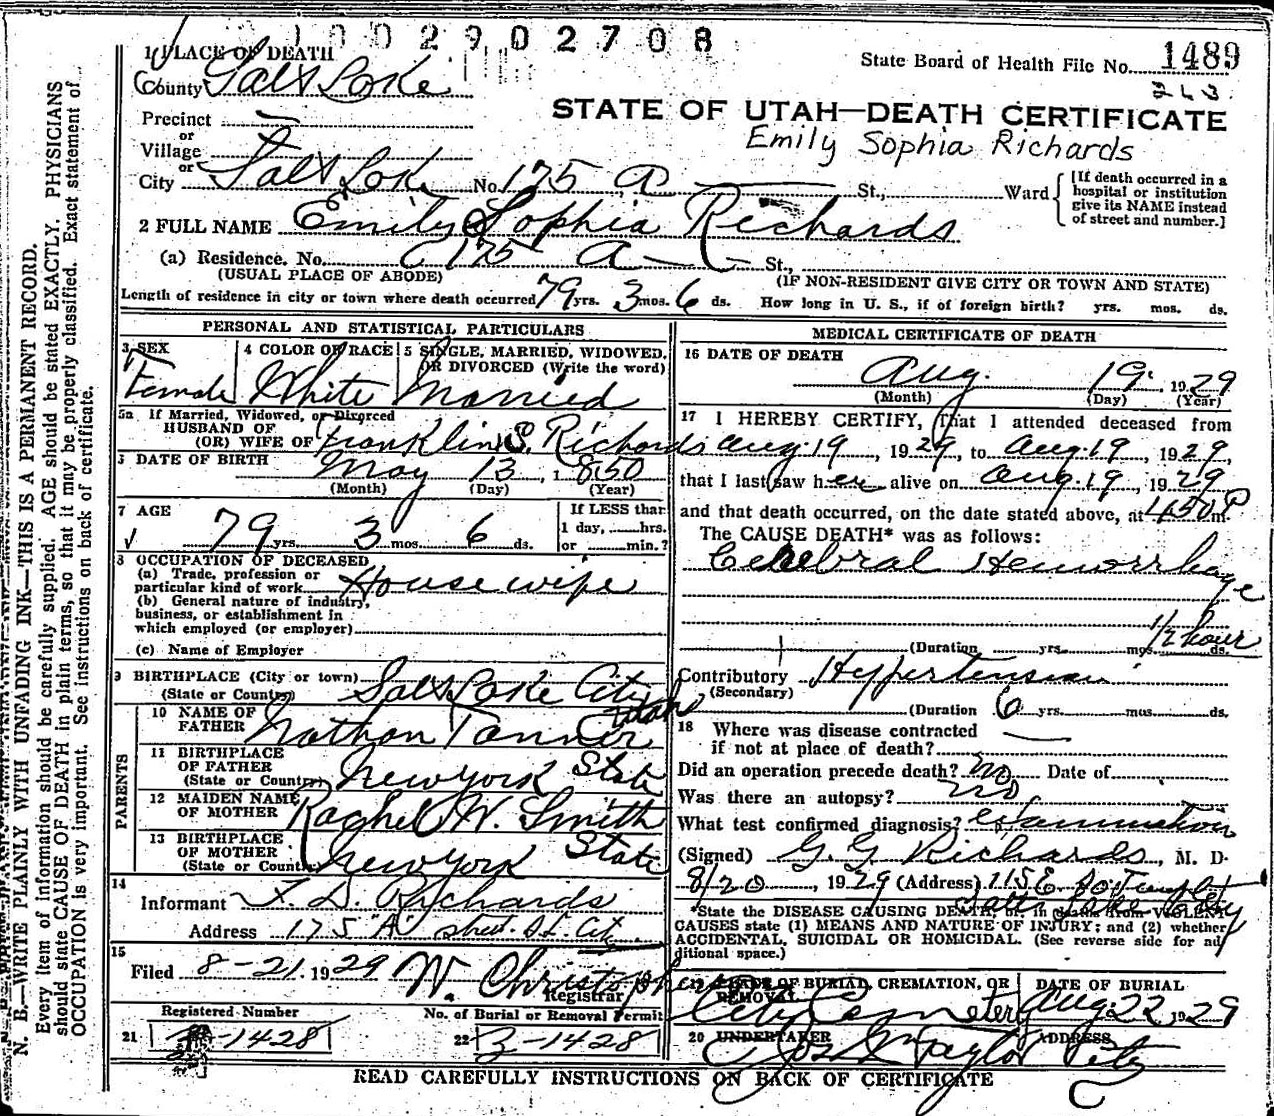 1002902708
1 PLACE OF DEATH
State Board of Health File No. 1489
County Salt Lake
STATE OF UTAH—DEATH CERTIFICATE
Precinct
or
Emily Sophia Richards
Village
or
City Salt Lake No. 175 A St., Ward
[If death occurred in a
hospital or institution
give its NAME instead
of street and number.]
2 FULL NAME Emily Sophia Richards
(a) Residence. No. 175 A St.,
(USUAL PLACE OF ABODE) (IF NON-RESIDENT GIVE CITY OR TOWN AND STATE)
Length of residence in city or town where death occurred 79 yrs. 3 mos. 6 ds. How long in U. S., if of foreign birth? yrs. mos. ds.
PERSONAL AND STATISTICAL PARTICULARS
3 SEX 4 COLOR OR RACE 5 SINGLE, MARRIED, WIDOWED,
OR DIVORCED (Write the word)
Female White Married
5a If Married, Widowed, or Divorced
HUSBAND OF
(OR) WIFE OF Franklin S. Richards
DATE OF BIRTH May 13, 1850
(Month) (Day) (Year)
7 AGE If LESS than
79 yrs. 3 mos. 6 ds. 1 day, hrs.
or min.?
8 OCCUPATION OF DECEASED
(a) Trade, profession or
particular kind of work Housewife
(b) General nature of industry,
business, or establishment in
which employed (or employer)
(c) Name of Employer
9 BIRTHPLACE (City or town)
(State or Country) Salt Lake City
Utah
PARENTS
10 NAME OF
FATHER Nathan Tanner
11 BIRTHPLACE
OF FATHER
(State or Country) New York State
12 MAIDEN NAME
OF MOTHER Rachel W. Smith
13 BIRTHPLACE
OF MOTHER
(State or Country) New York State
14
Informant F. D. Richards
Address 175 "A" street S. L. City
15
Filed 8-21. 1929 W. Christopherson
Registrar
Registered Number No. of Burial or Removal Permit
21 1428 22 3-1428
MEDICAL CERTIFICATE OF DEATH
16 DATE OF DEATH
Aug. 19. 1929
(Month) (Day) (Year)
17 I HEREBY CERTIFY, That I attended deceased from
Aug. 19, 1929, to Aug. 19, 1929,
that I last saw her alive on Aug. 19, 1929
and that death occurred, on the date stated above, at 450 P m.
The CAUSE DEATH* was as follows:
Cerebral Hemorrhage
1/2 hour
(Duration yrs. mos. ds.
Contributory Hypertension
(Secondary)
(Duration 6 yrs. mos. ds.
18 Where was disease contracted
if not at place of death?
Did an operation precede death? no Date of
Was there an autopsy? no
What test confirmed diagnosis? examination
(Signed) G. G. Richards, M. D.
8/20, 1929 (Address) 115 E. So Temple St
Salt Lake City
*State the DISEASE CAUSING DEATH, or, in deaths from VIOLENT
CAUSES state (1) MEANS AND NATURE OF INJURY; and (2) whether
ACCIDENTAL, SUICIDAL OR HOMICIDAL. (See reverse side for ad
ditional space.)
19 PLACE OF BURIAL, CREMATION, OR
REMOVAL
City Cemetery
DATE OF BURIAL
Aug. 22, 1929
20 UNDERTAKER ADDRESS
Jos. Taylor City
READ CAREFULLY INSTRUCTIONS ON BACK OF CERTIFICATE
N. B.—WRITE PLAINLY WITH UNFADING INK—THIS IS A PERMANENT RECORD.
Every item of information should be carefully supplied. AGE should be stated EXACTLY. PHYSICIANS
should state CAUSE OF DEATH in plain terms, so that it may be properly classified. Exact statement of
OCCUPATION is very important. See instructions on back of certificate.